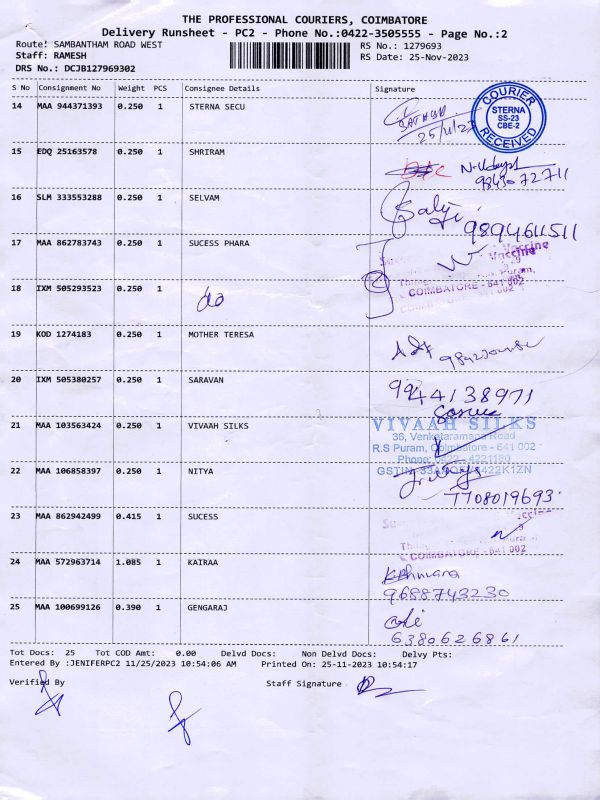 THE PROFESSIONAL COURIERS, COIMBATORE
Delivery Runsheet - PC2 - Phone No.:0422-3505555 - Page No.:2
Route: SAMBANTHAM ROAD WEST RS No.: 1279693
Staff: RAMESH RS Date: 25-Nov-2023
DRS No.: DCJB127969302
S No Consignment No Weight PCS Consignee Details Signature
14 MAA 944371393 0.250 1 STERNA SECU
25/11/23
COURIER STERNA SS-23 CBE-2 RECEIVED
15 EDQ 25163578 0.250 1 SHRIRAM
16 SLM 333553288 0.250 1 SELVAM
Balaji
9894611511
17 MAA 862783743 0.250 1 SUCESS PHARA
Vaccine
COIMBATORE - 641 002
18 IXM 505293523 0.250 1 do
19 KOD 1274183 0.250 1 MOTHER TERESA
20 IXM 505380257 0.250 1 SARAVAN
9944138971
21 MAA 103563424 0.250 1 VIVAAH SILKS
VIVAAH SILKS
36, Venkataramana Road
R.S Puram, Coimbatore - 641 002
22 MAA 106858397 0.250 1 NITYA
7708019693
23 MAA 862942499 0.415 1 SUCESS
COIMBATORE - 641 002
24 MAA 572963714 1.085 1 KAIRAA
9688743230
25 MAA 100699126 0.390 1 GENGARAJ
6380626861
Tot Docs: 25 Tot COD Amt: 0.00 Delvd Docs: Non Delvd Docs: Delvy Pts:
Entered By :JENIFERPC2 11/25/2023 10:54:06 AM Printed On: 25-11-2023 10:54:17
Verified By Staff Signature